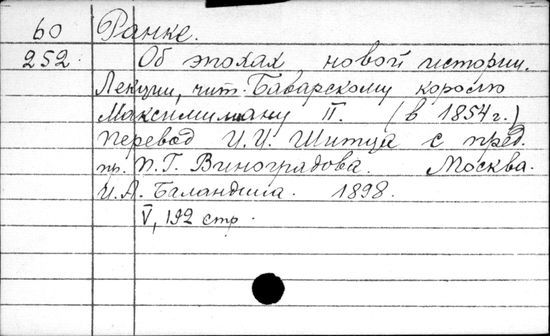 60 Ранке.
252. Об эпохах новой истории.
Лекции, чит. Баварскому королю
Максимилиану II. (в 1854 г.)
Перевод И. И. Шитца с пред.
пр. П. Г. Виноградова. Москва.
И. А. Баландина. 1898.
V, 192 стр.